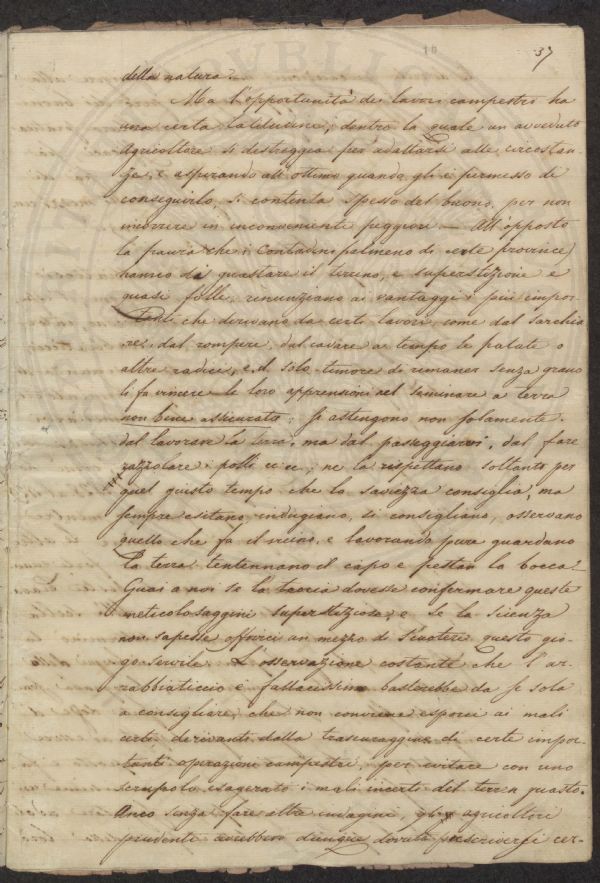 10
37
della natura.
Ma l'opportunità dei lavori campestri ha
una certa latitudine, dentro la quale un avveduto
Agricoltore si destreggia per adattarsi alle circostan-
ze, e aspirando all'ottimo quando gli è permesso di
conseguirlo, si contenta spesso del buono, per non
incorrere in inconvenienti peggiori — All'opposto
la paura che i Contadini (almeno di certe province)
hanno di guastare il terreno, è superstizione e
quasi folle, rinunziano ai vantaggi i più impor-
tanti che derivano da certi lavori, come dal sarchia-
re, dal rompere, dal cavare a tempo le patate o
altre radici, e il solo timore di rimaner senza grano
li fa vincere le loro apprensioni nel seminare a terra
non bene assicurata; si astengono non solamente
dal lavorare la terra, ma dal passeggiarvi, dal fare
razzolare i polli ec ec; ne la rispettano soltanto per
quel giusto tempo che la saviezza consiglia, ma
sempre esitano, indugiano, si consigliano, osservano
quello che fa il vicino, e lavorando pure guardano
la terra tentennano il capo e la bocca?
Guai a noi se la teoria dovesse confermare queste
meticolosaggini superstiziose, e se la scienza
non sapesse offrirci un mezzo di scuotere questo gio-
go servile. L'osservazione costante che l'ar-
rabbiaticcio è fallacissimo basterebbe da se sola
a consigliare, che non conviene esporci ai mali
certi derivanti dalla trascuraggine di certe impor-
tanti operazioni campestri, per evitare con uno
scrupolo esagerato i mali incerti del terren guasto.
Anco senza fare altre indagini, gli agricoltori
prudenti avrebbero dunque dovuto prescriversi cer-